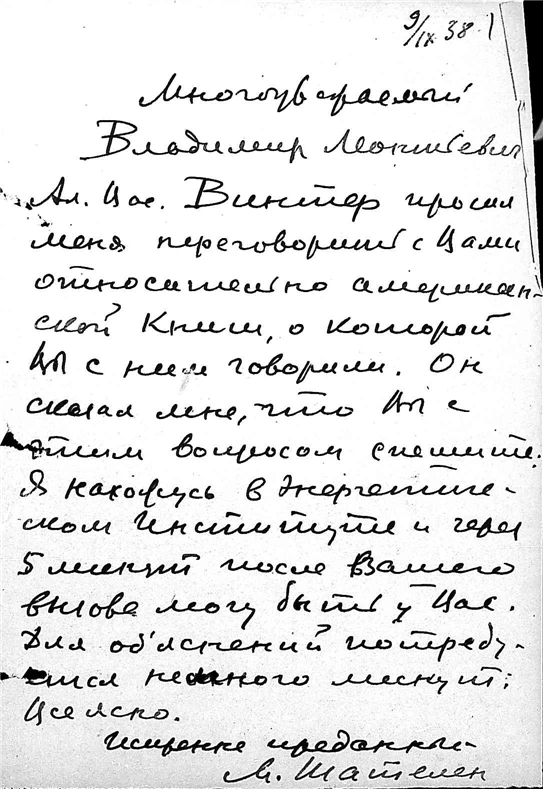 9/IX 38
Многоуважаемый
Владимир Леонтьевич
Ал. Вас. Винтер просил
меня переговорить с Вами
относительно американ-
ской книги, о которой
Вы с ним говорили. Он
сказал мне, что Вы с
этим вопросом спешите.
Я нахожусь в Энергетиче-
ском Институте и через
5 минут после Вашего
вызова могу быть у Вас.
Для об'яснений потребу-
ется немного минут:
Все ясно.
Искренне преданный
М. Шателен